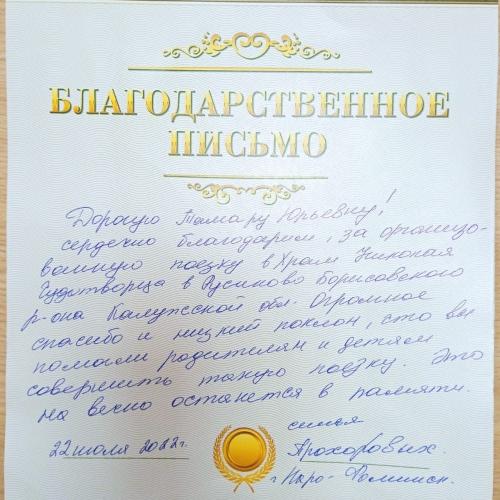 БЛАГОДАРСТВЕННОЕ
ПИСЬМО
Дорогую Тамару Юрьевну!
сердечно благодарим, за организо-
ванную поездку в Храм Николая
Чудотворца в Русиново Боровского
р-она Калужсской обл. Огромное
спасибо и низкий поклон, сто вы
помогли родителям и детям
совершить такую поездку. Это
на весно останется в памяти.
22 июля 2022 г.
семья
Прохоровых.
г Наро-Фоминск.